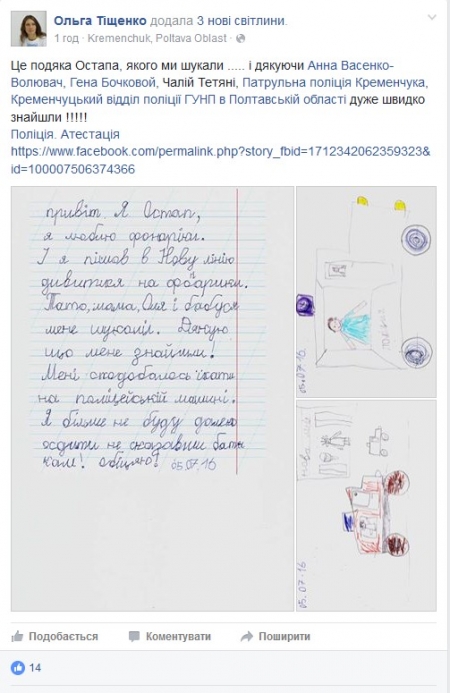 Ольга Тіщенко додала 3 нові світлини.
1 год · Kremenchuk, Poltava Oblast ·
Це подяка Остапа, якого ми шукали ..... і дякуючи Анна Васенко-
Волювач, Гена Бочковой, Чалій Тетяні, Патрульна поліція Кременчука,
Кременчуцький відділ поліції ГУНП в Полтавській області дуже швидко
знайшли !!!!!
Поліція. Атестація
https://www.facebook.com/permalink.php?story_fbid=1712342062359323&
id=100007506374366
привіт. Я Остап,
я люблю фонаріки.
І я пішов в Нову лінію
дивитися на фонарики.
Тато, мама, Оля і бабуся
мене шукали. Дякую
що мене знайшли.
Мені сподобалось їхати
на поліцейській машині.
Я більше не буду далеко
ходити не сказавши бать
кам! обіцяю! 05.07.16
05.07.16
05.07.16
Подобається Коментувати Поширити
14